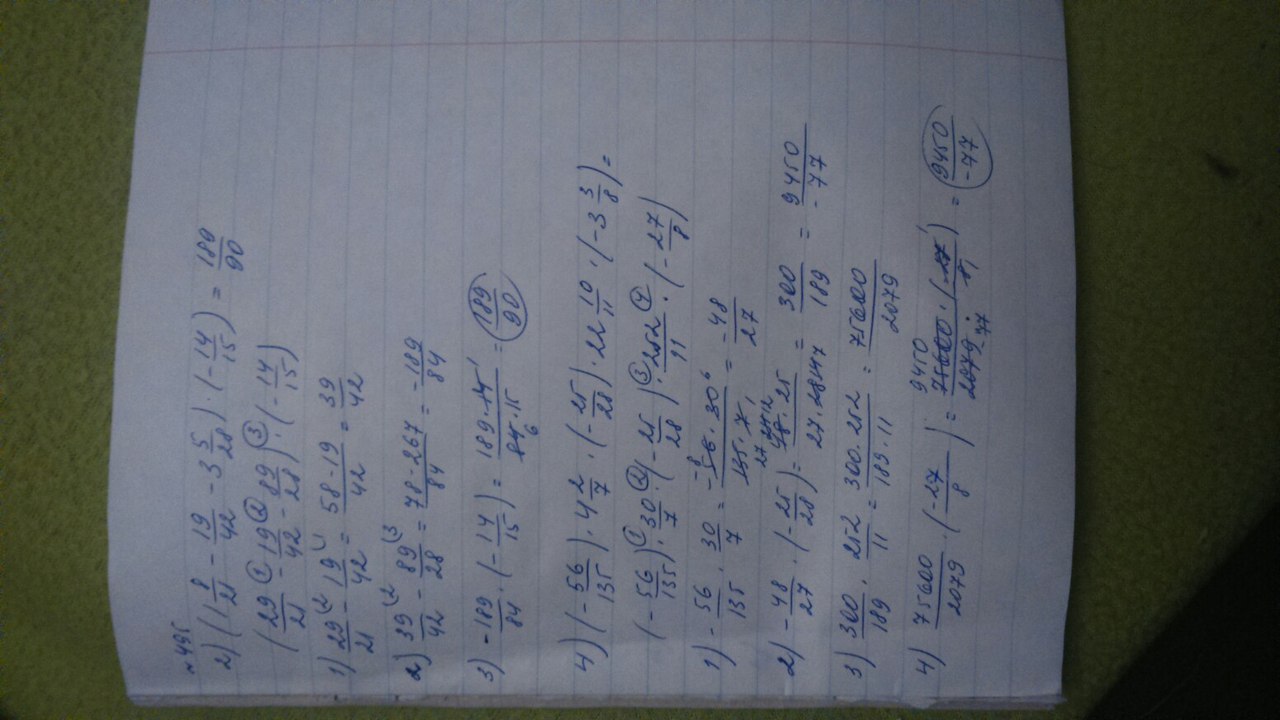 №495
2) (1 8/21 - 19/42 - 3 5/28) · (- 14/15) = 189/90
(29/21 -① 19/42 -② 89/28) ·③ (- 14/15)
1) 29/21 (2 - 19/42 (1 = 58 - 19/42 = 39/42
2) 39/42 (2 - 89/28 (3 = 78 - 267/84 = -189/84
3) - 189/84 · (- 14/15) = 189 · 14 1/84 6 · 15 = 189/90
4) (- 56/135) · 4 2/7 · (- 25/28) · 22 10/11 · (-3 3/8) =
(- 56/135) ·① 30/7 ·② (- 25/28) ·③ 252/11 ·④ (- 27/8)
1) - 56/135 · 30/7 = -8 -56 · 30 6/135 27 · 7 1 = -48/27
2) - 48/27 · (- 25/28) = 48 · 25/27 · 28 = 300/189 = 9450/-77
3) 300/189 · 252/11 = 300 · 252/189 · 11 = 75600/2079
4) 75600/2079 · (-27/8) = 9450 75600 · (-27 1)/2079 -77 · 8 1 = 9450/-77